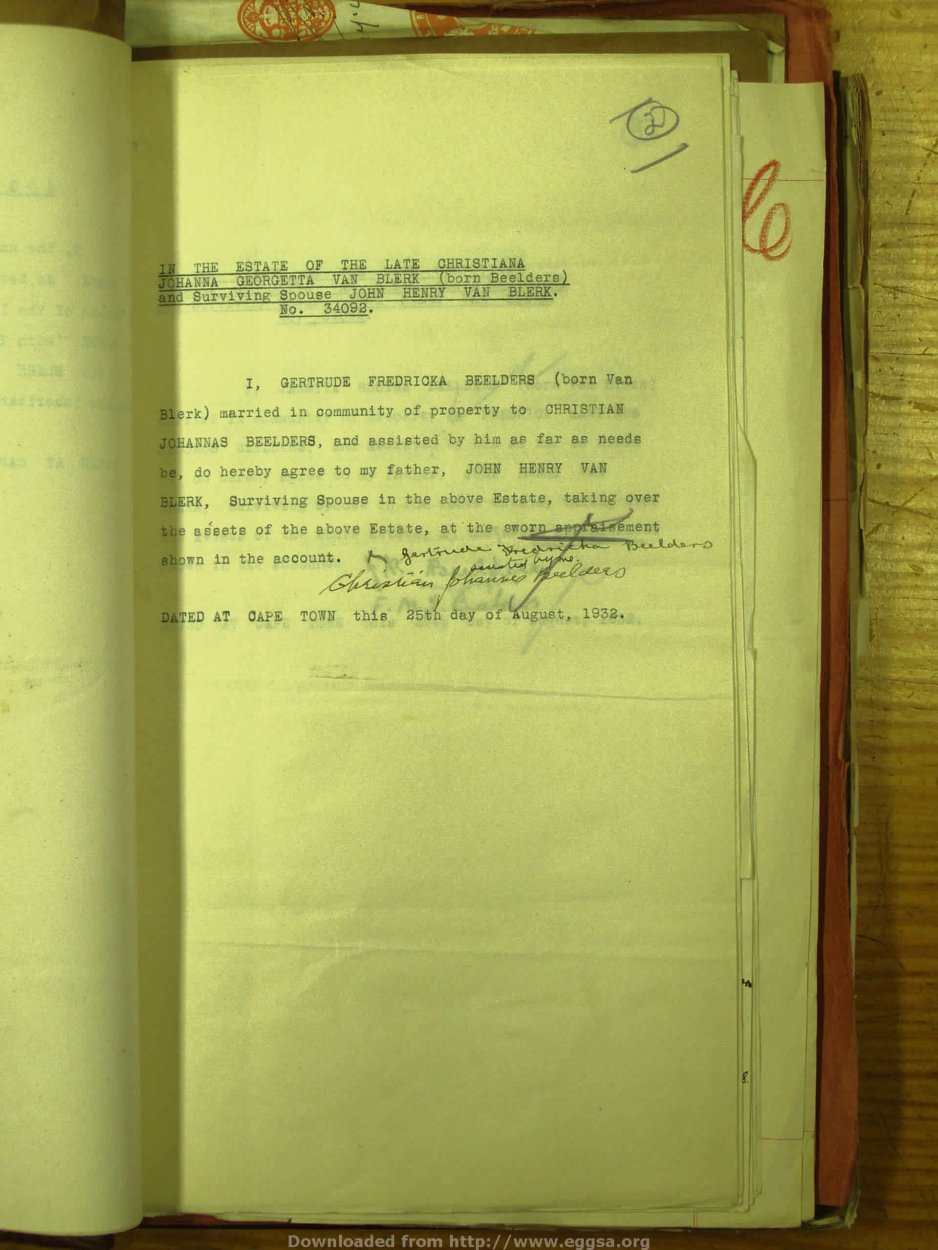 IN THE ESTATE OF THE LATE CHRISTIANA
JOHANNA GEORGETTA VAN BLERK (born Beelders)
and Surviving Spouse JOHN HENRY VAN BLERK.
No. 34092.
I, GERTRUDE FREDRICKA BEELDERS (born Van
Blerk) married in community of property to CHRISTIAN
JOHANNAS BEELDERS, and assisted by him as far as needs
be, do hereby agree to my father, JOHN HENRY VAN
BLERK, Surviving Spouse in the above Estate, taking over
the assets of the above Estate, at the sworn appraisement
shown in the account.
Gertrude Fredricka Beelders
assisted by me.
Christian Johannes Beelders
DATED AT CAPE TOWN this 25th day of August, 1932.
8.
Downloaded from http://www.eggsa.org